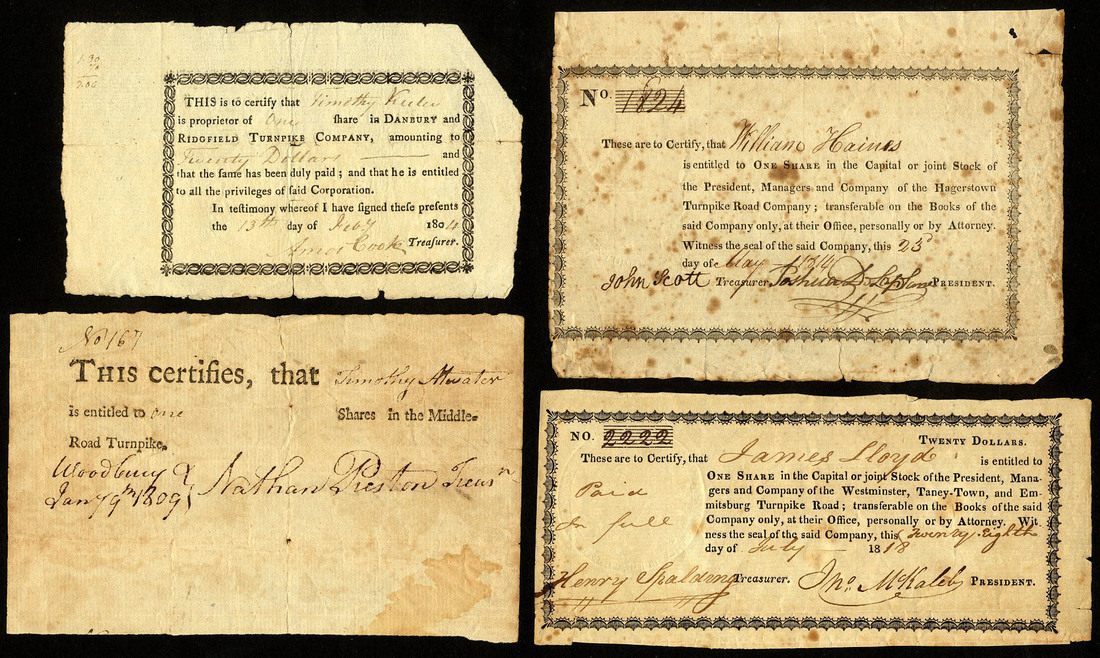 THIS is to certify that Timothy Keeler
is proprietor of One share in DANBURY and
RIDGFIELD TURNPIKE COMPANY, amounting to
Twenty Dollars and
that the same has been duly paid; and that he is entitled
to all the privileges of said Corporation.
In testimony whereof I have signed these presents
the 13th day of Feby 1804
Amos Cook Treasurer.
No. 1824
These are to Certify, that William Haines
is entitled to ONE SHARE in the Capital or joint Stock of
the President, Managers and Company of the Hagerstown
Turnpike Road Company; transferable on the Books of the
said Company only, at their Office, personally or by Attorney.
Witness the seal of the said Company, this 25
day of May
John Scott Treasurer PRESIDENT.
No 167
THIS certifies, that Timothy Atwater
is entitled to one Shares in the Middle-
Road Turnpike,
Woodbury
Jany 9th 1809 Nathan Preston Treasr
NO. 2222
TWENTY DOLLARS.
These are to Certify, that James Lloyd is entitled to
ONE SHARE in the Capital or joint Stock of the President, Mana-
gers and Company of the Westminster, Taney-Town, and Em-
mitsburg Turnpike Road; transferable on the Books of the said
Company only, at their Office, personally or by Attorney. Wit-
ness the seal of the said Company, this twenty Eighth
day of July 1818
Paid
In full
Henry Spalding Treasurer. Jno. McKaleb PRESIDENT.